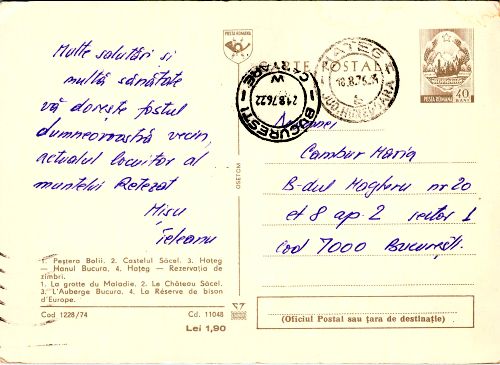 POSTA ROMANA
CARTE POSTALA
HATEG
18.8.76
HUNEDOARA
BUCURESTI
21.8.76.22
W
CARTARE
POSTA ROMANA 40
Multe salutări si
multă sănătate
vă dorește fostul
dumneavoastră vecin,
actualul locuitor al
muntelui Retezat
Misu
Teleanu
Cambur Maria
B-dul Magheru nr 20
et 8 ap. 2 sector 1
cod 7000 București.
OSETCM
1. Peștera Bolii. 2. Castelul Săcel. 3. Hațeg
— Hanul Bucura. 4. Hațeg — Rezervația de
zimbri.
1. La grotte du Maladie. 2. Le Château Săcel.
3. L'Auberge Bucura. 4. La Réserve de bison
d'Europe.
Cod 1228/74 Cd. 11048
Lei 1,90
(Oficiul Postal sau țara de destinație)